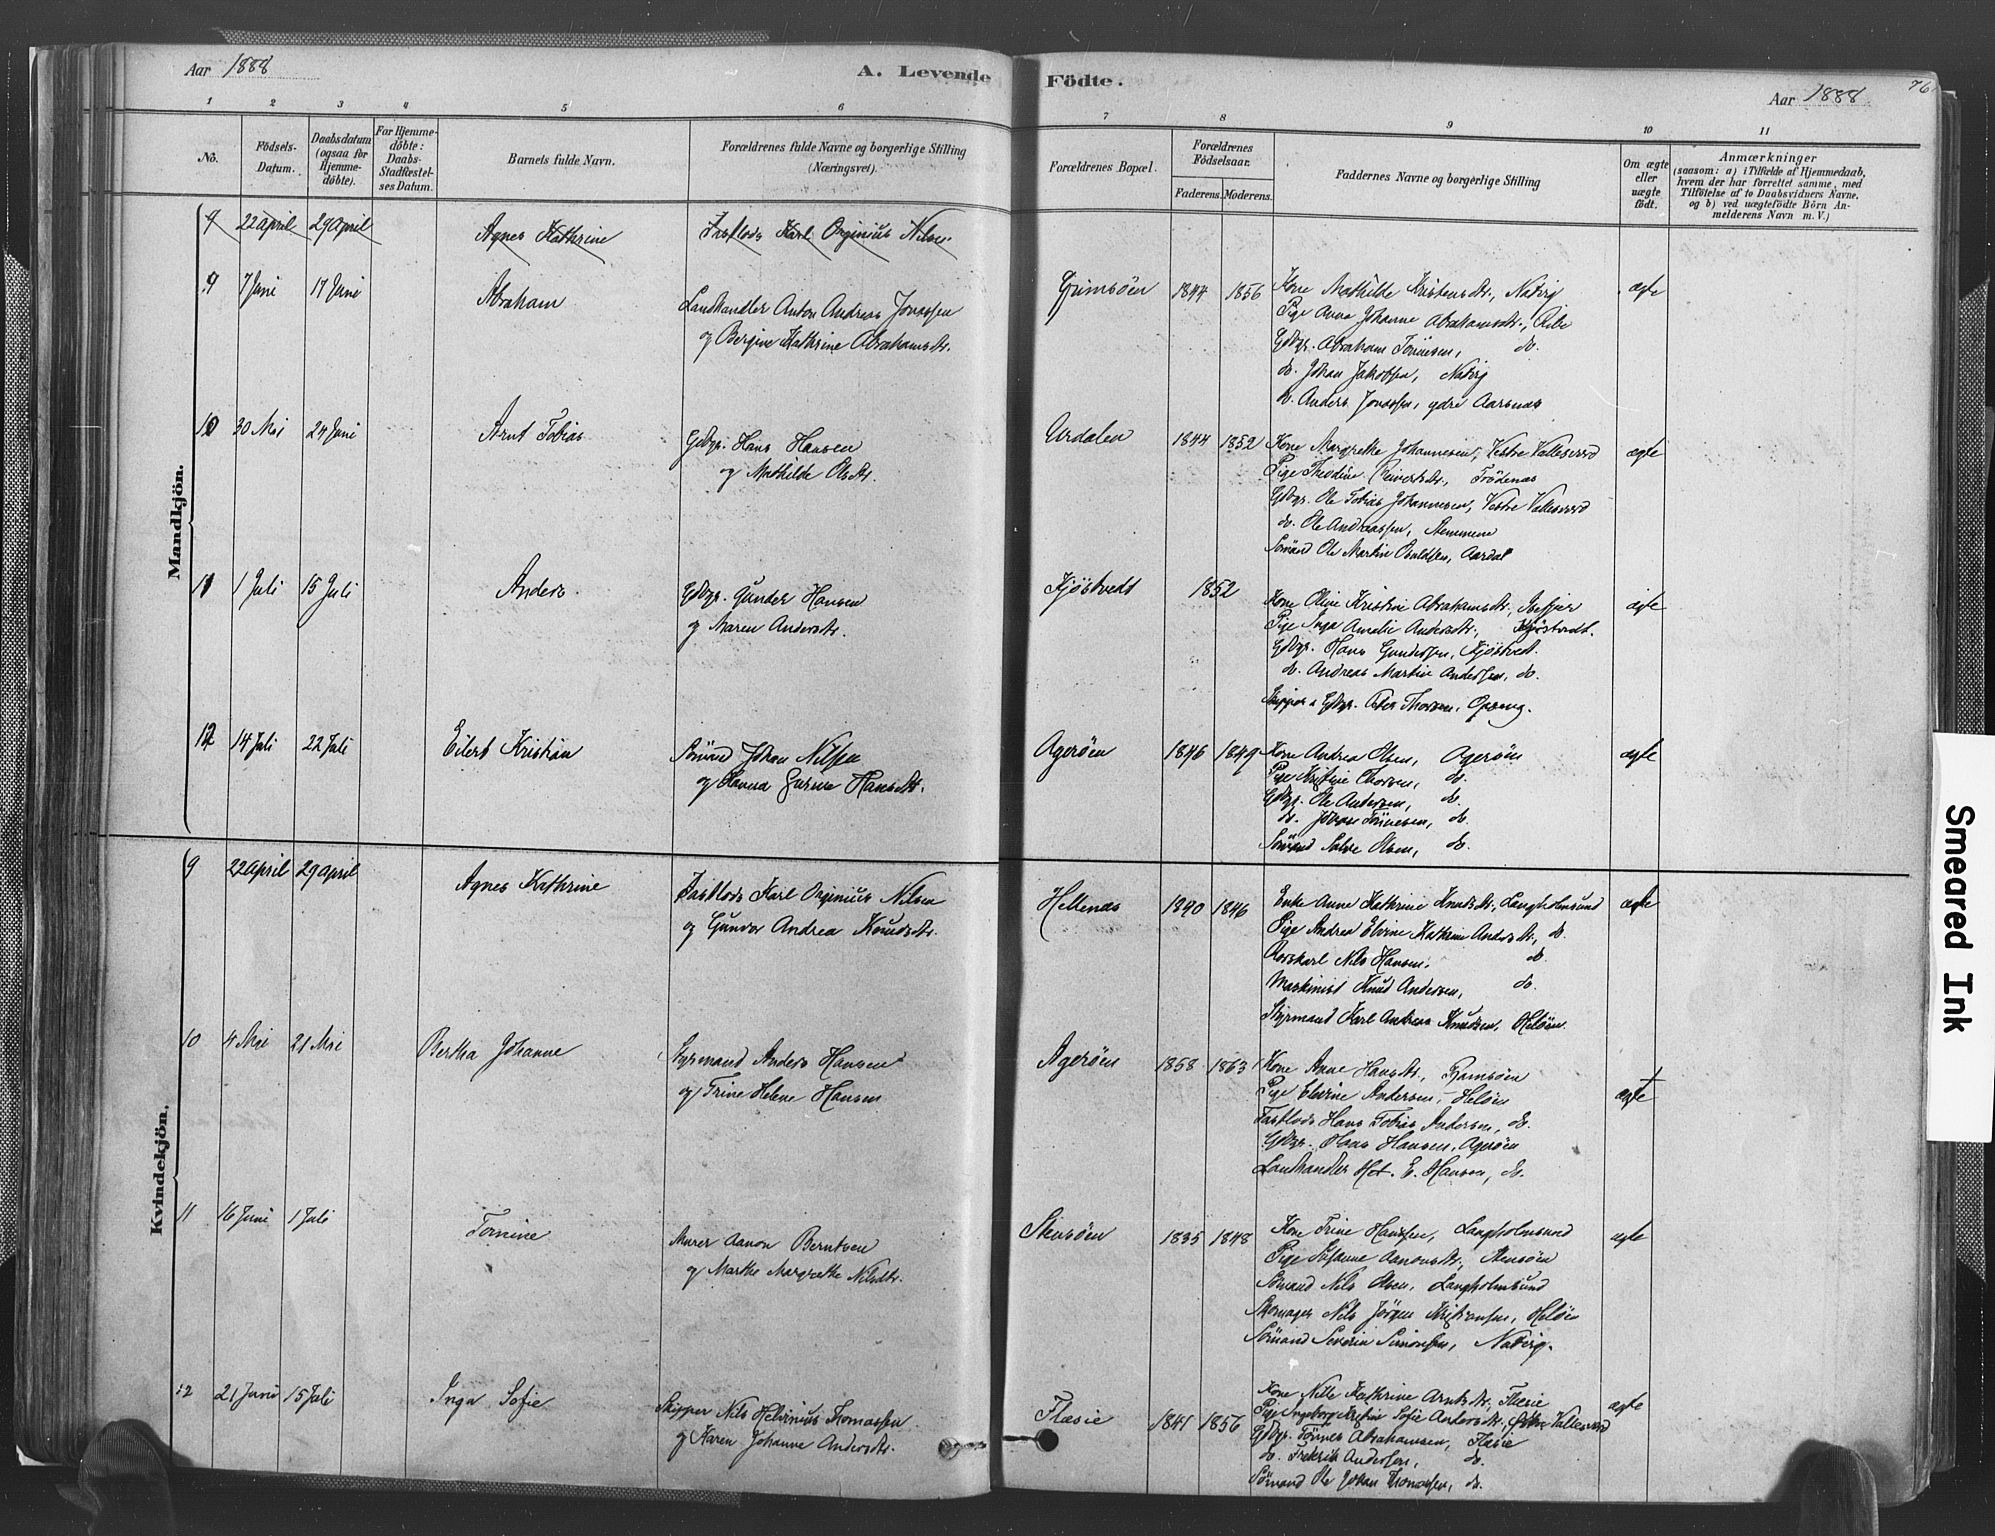 Aar 1888
A. Levende
Födte.
Aar 1888
76
1 2 3 4 5 6 7 8 9 10 11
No.
Födsels-Datum.
Daabsdatum (ogsaa for Hjemmedöbte).
For Hjemmedöbte: Daabs-Stadfæstelses Datum.
Barnets fulde Navn.
Forældrenes fulde Navne og borgerlige Stilling (Næringsvei).
Forældrenes Bopæl.
Forældrenes Födselsaar.
Faderens. Moderens.
Faddernes Navne og borgerlige Stilling
Om ægte eller uægte födt.
Anmærkninger
(saasom: a) i Tilfælde af Hjemmedaab,
hvem der har forrettet samme, med
Tilföielse af to Daabsvidners Navne,
og b) ved uægtefödte Börn An-
melderens Navn m. V.)
Mandkjön.
9 22 April 29 April Agnes Kathrine Fastlods Karl Orginius Nilsen
9 7 Juni 17 Juni Abraham
Landhandler Anton Andreas Jonassen
og Bergine Kathrine Abrahamsdtr.
1844 1856
Kone Mathilde Kristensdtr., Natvig
Pige Anna Johanne Abrahamsdtr., Ribe
Gdbgr. Abraham Tönnesen, do.
do. Johan Jakobsen, Natvig
do. Anders Jonassen, ydre Aarsnes
ægte
10 30 Mai 24 Juni Arnt Tobias
Gdbgr. Hans Hansen
og Mathilde Olsdtr.
Urdalen 1844 1852
Kone Margrethe Johannesen, Vestre Vallesverd
Pige Thedine
Gdbgr. Ole Tobias Johannesen, Vestre Vallesverd
do. Ole Andreassen, Stemmene
Sömand Ole Martin Aardal
ægte
11 1 Juli 15 Juli Anders
Gdbgr. Gunder Hansen
og Maren Andersdtr.
Kjöstvedt 1852
Kone Oline Kristine Abrahamsdtr.,
Pige Inga Amalie Andersdtr., Kjöstvedt.
Gdbgr. Hans Gundersen, Kjöstvedt.
do. Andreas Martin Andersen, do.
Skipper & Gdbgr. Peter Thorsen,
ægte
12 14 Juli 22 Juli Eilert Kristian
Sömand Johan Nilsen
og Gurine Hansdtr.
Ageröen 1846 1849
Kone Andrea Olsen, Ageröen
Pige Kristine Thorsen, do.
Gdbgr. Ole Andersen, do.
do. Johan Tönnesen, do.
Sömand Salve Olsen, do.
ægte
Kvindekjön.
9 22 April 29 April Agnes Kathrine
Fastlods Karl Orginius Nilsen
og Gunvor Andrea Knudsdtr.
Hellenes 1840 1846
Enke Anne Kathrine Knudsdtr., Langholmsund
Pige Andrea Elvine Kathrine Andersdtr., do.
Nils Hansen, do.
Maskinist Knud Andersen, do.
Styrmand Karl Andreas Knudsen, Helöen.
ægte
10 4 Mai 21 Mai Bertha Johanne
Styrmand Anders Hansen
og Trine Helene Hansen
Ageröen 1858 1863
Kone Anne Hansdtr.,
Pige Elvine Andersen, Helöen
Fastlods Hans Tobias Andersen, do.
Gdbgr. Hans Hansen, Ageröen
Landhandler E. Hansen, do.
ægte
11 16 Juni 1 Juli Tomine
Murer Aanon Berntsen
og Marthe Margrethe Nilsdtr.
Stensöen 1835 1848
Kone Trine Hansen, Langholmsund
Pige Susanne Aanonsdtr., Stensöen
Sömand Nils Olsen, Langholmsund
Skomager Nils Jörgen Kristiansen, Helöen
Sömand Severin Simonsen, Natvig.
ægte
12 21 Juni 15 Juli Inga Sofie
Skipper Nils Helvinius Thomassen
og Karen Johanne Andersdtr.
Flæsie 1841 1856
Kone Nelle Kathrine Arntsdtr., Flæsie
Pige Ingeborg Kristine Sofie Andersdtr., Vallesverd
Gdbgr. Tönnes Abrahamsen, Flæsie
do. Fredrik Andersen, do.
Sömand Ole Johan Thomassen, do.
ægte
Smeared Ink